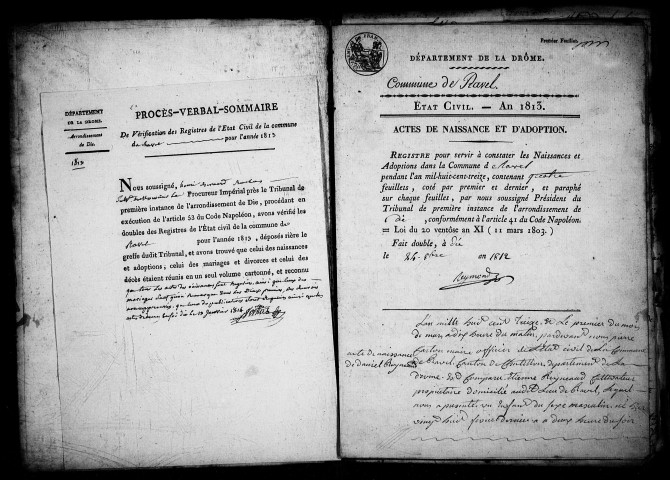 DÉPARTEMENT
DE LA DROME.
Arrondissement
de Die.
1813
PROCÈS-VERBAL-SOMMAIRE
De Vérification des Registres de l'Etat Civil de la commune
de Ravel pour l'année 1813
Nous soussigné,
Procureur Impérial près le Tribunal de
première instance de l'arrondissement de Die, procédant en
exécution de l'article 53 du Code Napoléon, avons vérifié les
doubles des Registres de l'Etat civil de la commune de
Ravel pour l'année 1813, déposés rière le
greffe dudit Tribunal, et avons trouvé que celui des naissances
et adoptions, celui des mariages et divorces et celui des
décès étaient réunis en un seul volume cartonné, et reconnu
que tous les actes de naissances sont
mariages
Premier Feuillet.
DÉPARTEMENT DE LA DRÔME.
Commune de Ravel.
ETAT CIVIL. — AN 1813.
ACTES DE NAISSANCE ET D'ADOPTION.
REGISTRE pour servir à constater les Naissances et
Adoptions dans la Commune d Ravel
pendant l'an mil-huit-cent-treize, contenant quatre
feuilles, coté par premier et dernier, et paraphé
sur chaque feuilles, par nous soussigné Président du
Tribunal de première instance de l'arrondissement de
Die, conformément à l'article 41 du Code Napoléon.
= Loi du 20 ventôse an XI (11 mars 1803.)
Fait double, à Die
le 24 8bre an 1812
Reymond
L'an mille huit cent treize & le premier du mois
de mars a dix heure du matin, pardevant nous pierre
Caston maire officier de l'état civil de la Commune
acte de naissance
de daniel Reynaud
de Ravel Canton de Chatillon, département de la
drome est Comparu étienne Reynaud Cultivateur
propriétaire domicilié audit Lieu de Ravel, Lequel
nous a présenté un enfant du sexe masculin né le
vingt huit fevrier dernier a deux heure du soir